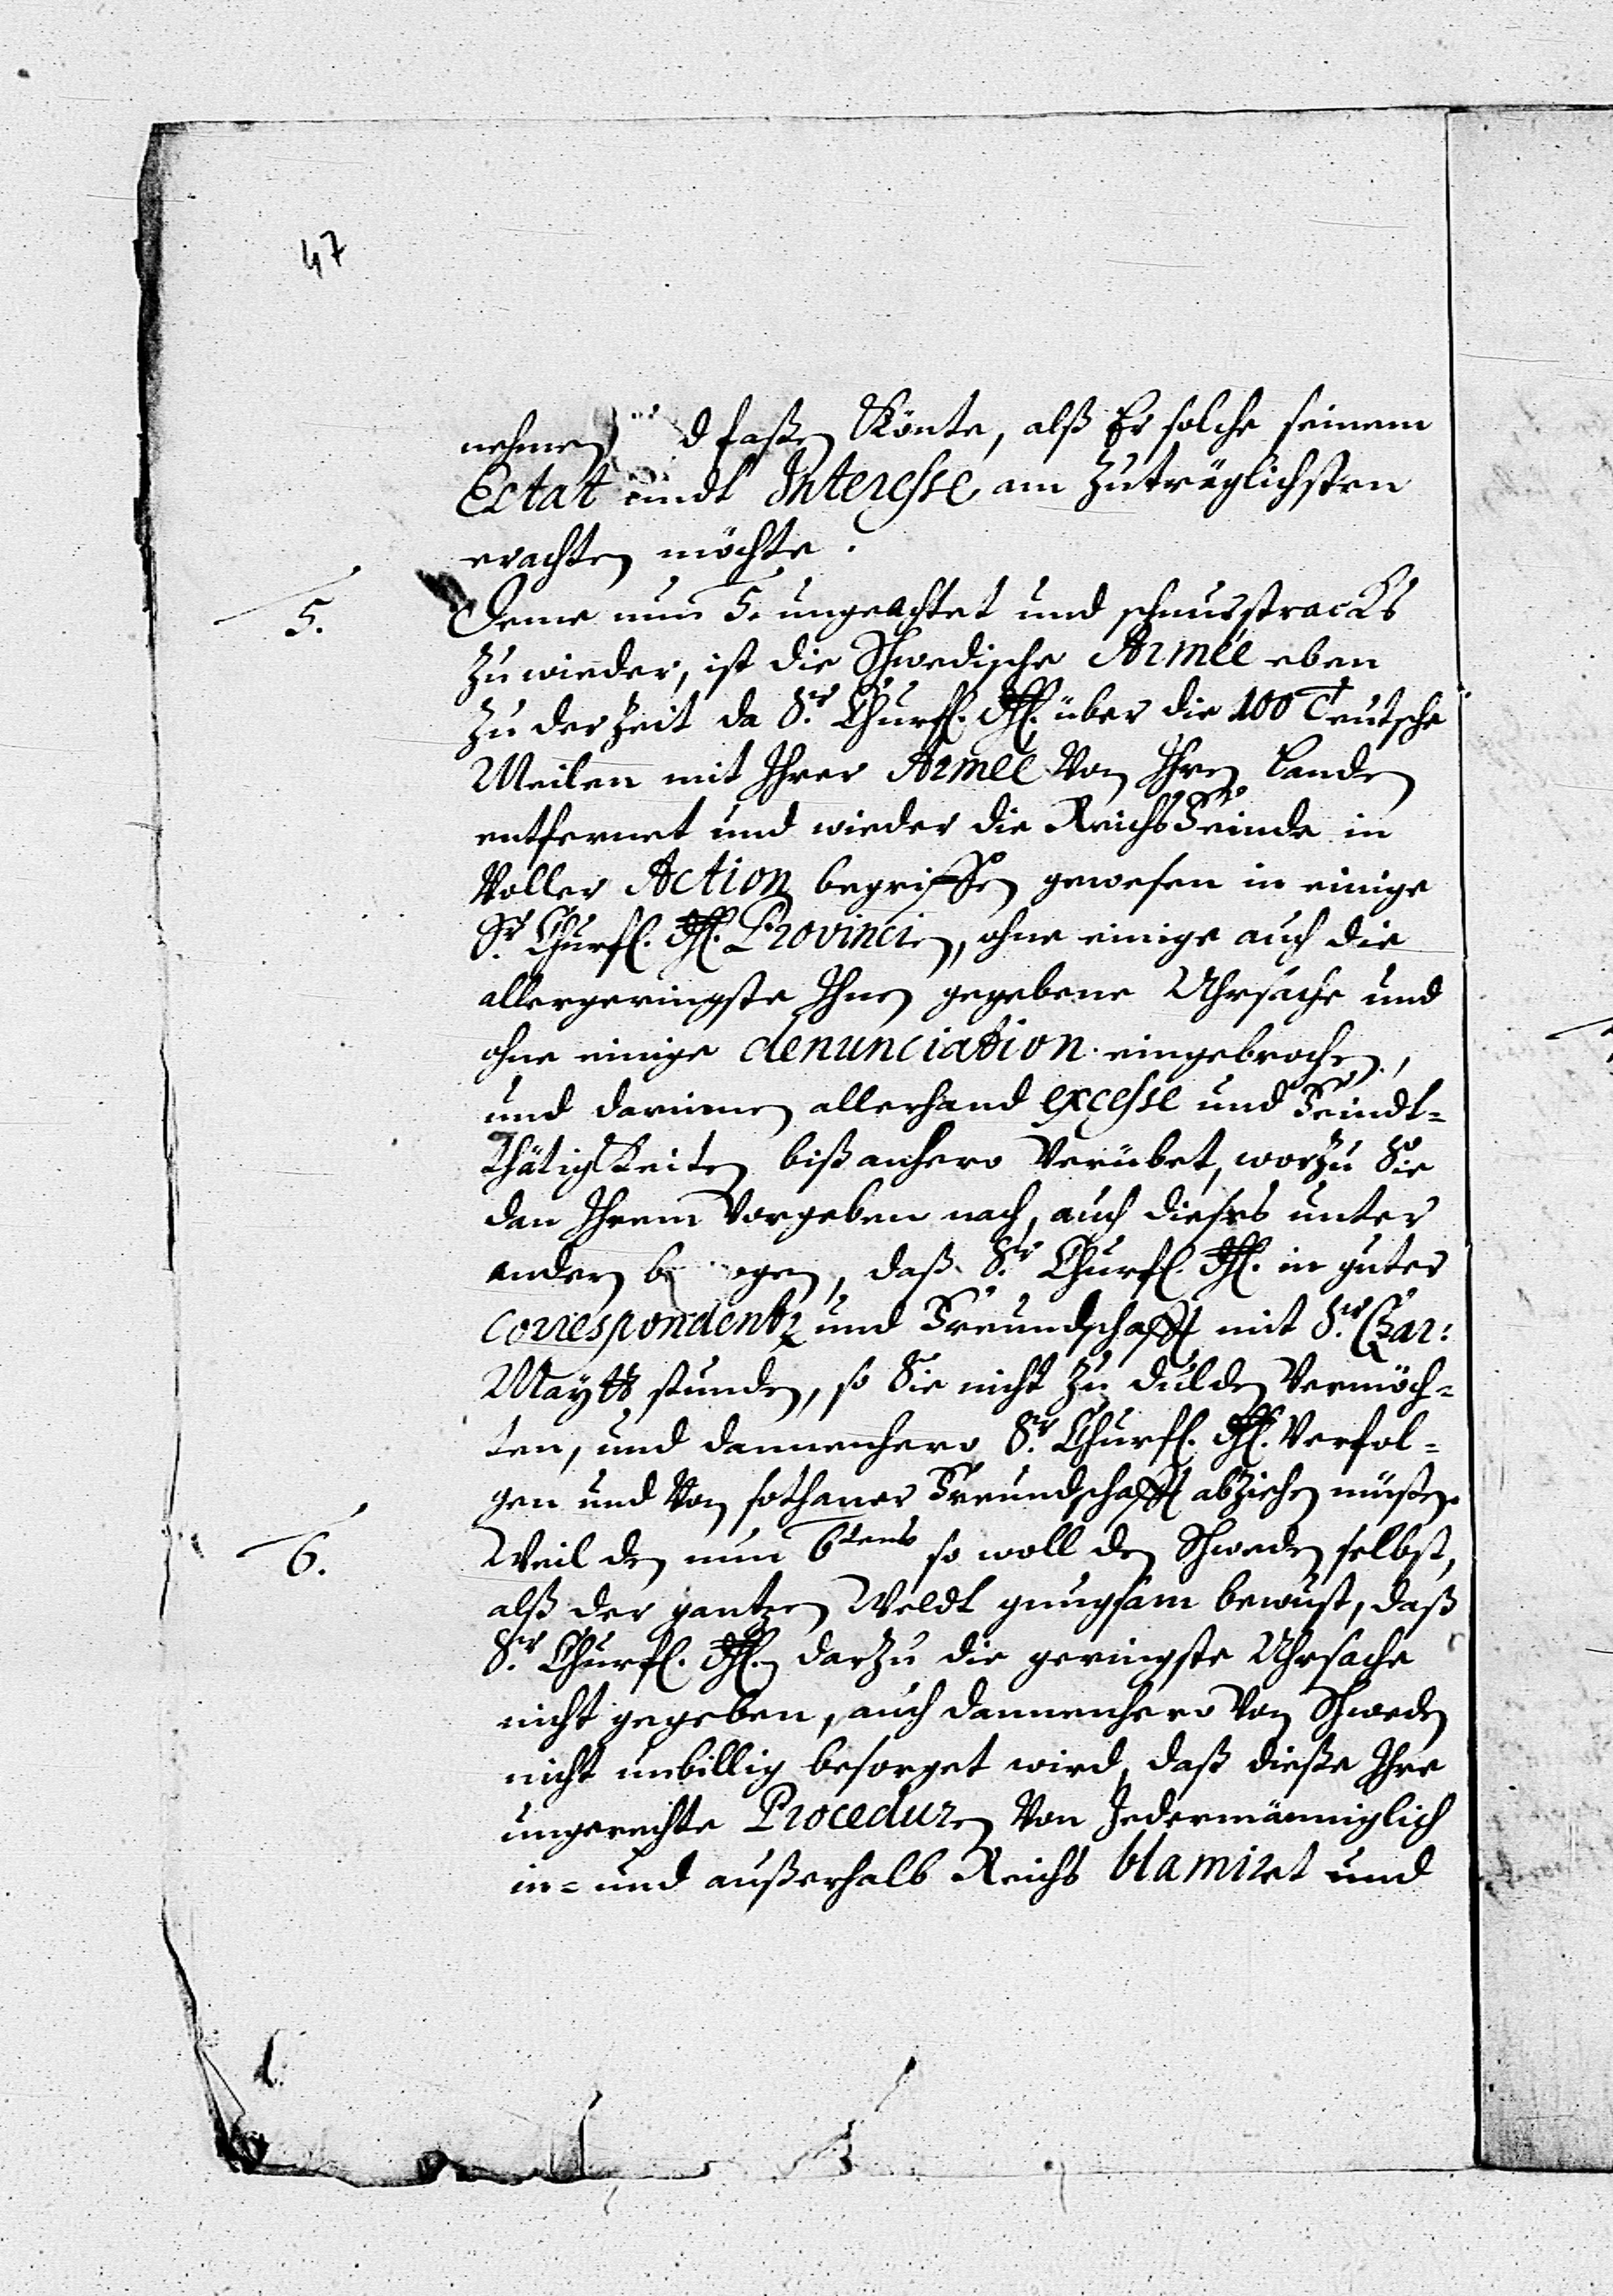 47
nehmen faßen Könte, alß Er solche seinem
Estat undt Interesse am zuträglichsten
erachten möchte.
5.
Deme nun 5. ungeachtet und schnurstracks
zu wieder, ist die Schwedische Armée eben
zu der Zeit da Sr. Churfl. Dhl. über die 100 Teutsche
Meilen mit Ihrer Armee von Ihren Landen
entfernet und wieder die ReichsFeinde in
voller Action begriffen gewesen in einige
Sr. Churfl. Dhl. Provincien, ohne einige auch die
allergeringste Ihnen gegebene Uhrsache und
ohne einige denunciation eingebrochen,
und darinnen allerhand excesse und Feindt-
thätigkeiten biß anhero verübet, worzu Sie
dan Ihrem vorgeben nach, auch dieses unter
andern, daß Sr. Churfl. Dhl. in guter
correspondentz und Freundschafft mit Sr. Czar:
Maytt stunden, so Sie nicht zu dulden vermöch-
ten, und dannenhero Sr. Churfl. Dhl. verfol-
gen und von sothaner Freundschafft abziehen müßen.
6.
Weil den nun 6tens so woll den Schweden selbst,
alß der gantzen Weldt gnugsam bewust, daß
Sr. Churfl. Dhl. darzu die geringste Uhrsache
nicht gegeben, auch dannenhero von Schweden
nicht unbillig besorget wird, daß dieße Ihre
ungerechte Proceduren von Jedermänniglich
in- und außerhalb Reichs blamiret und